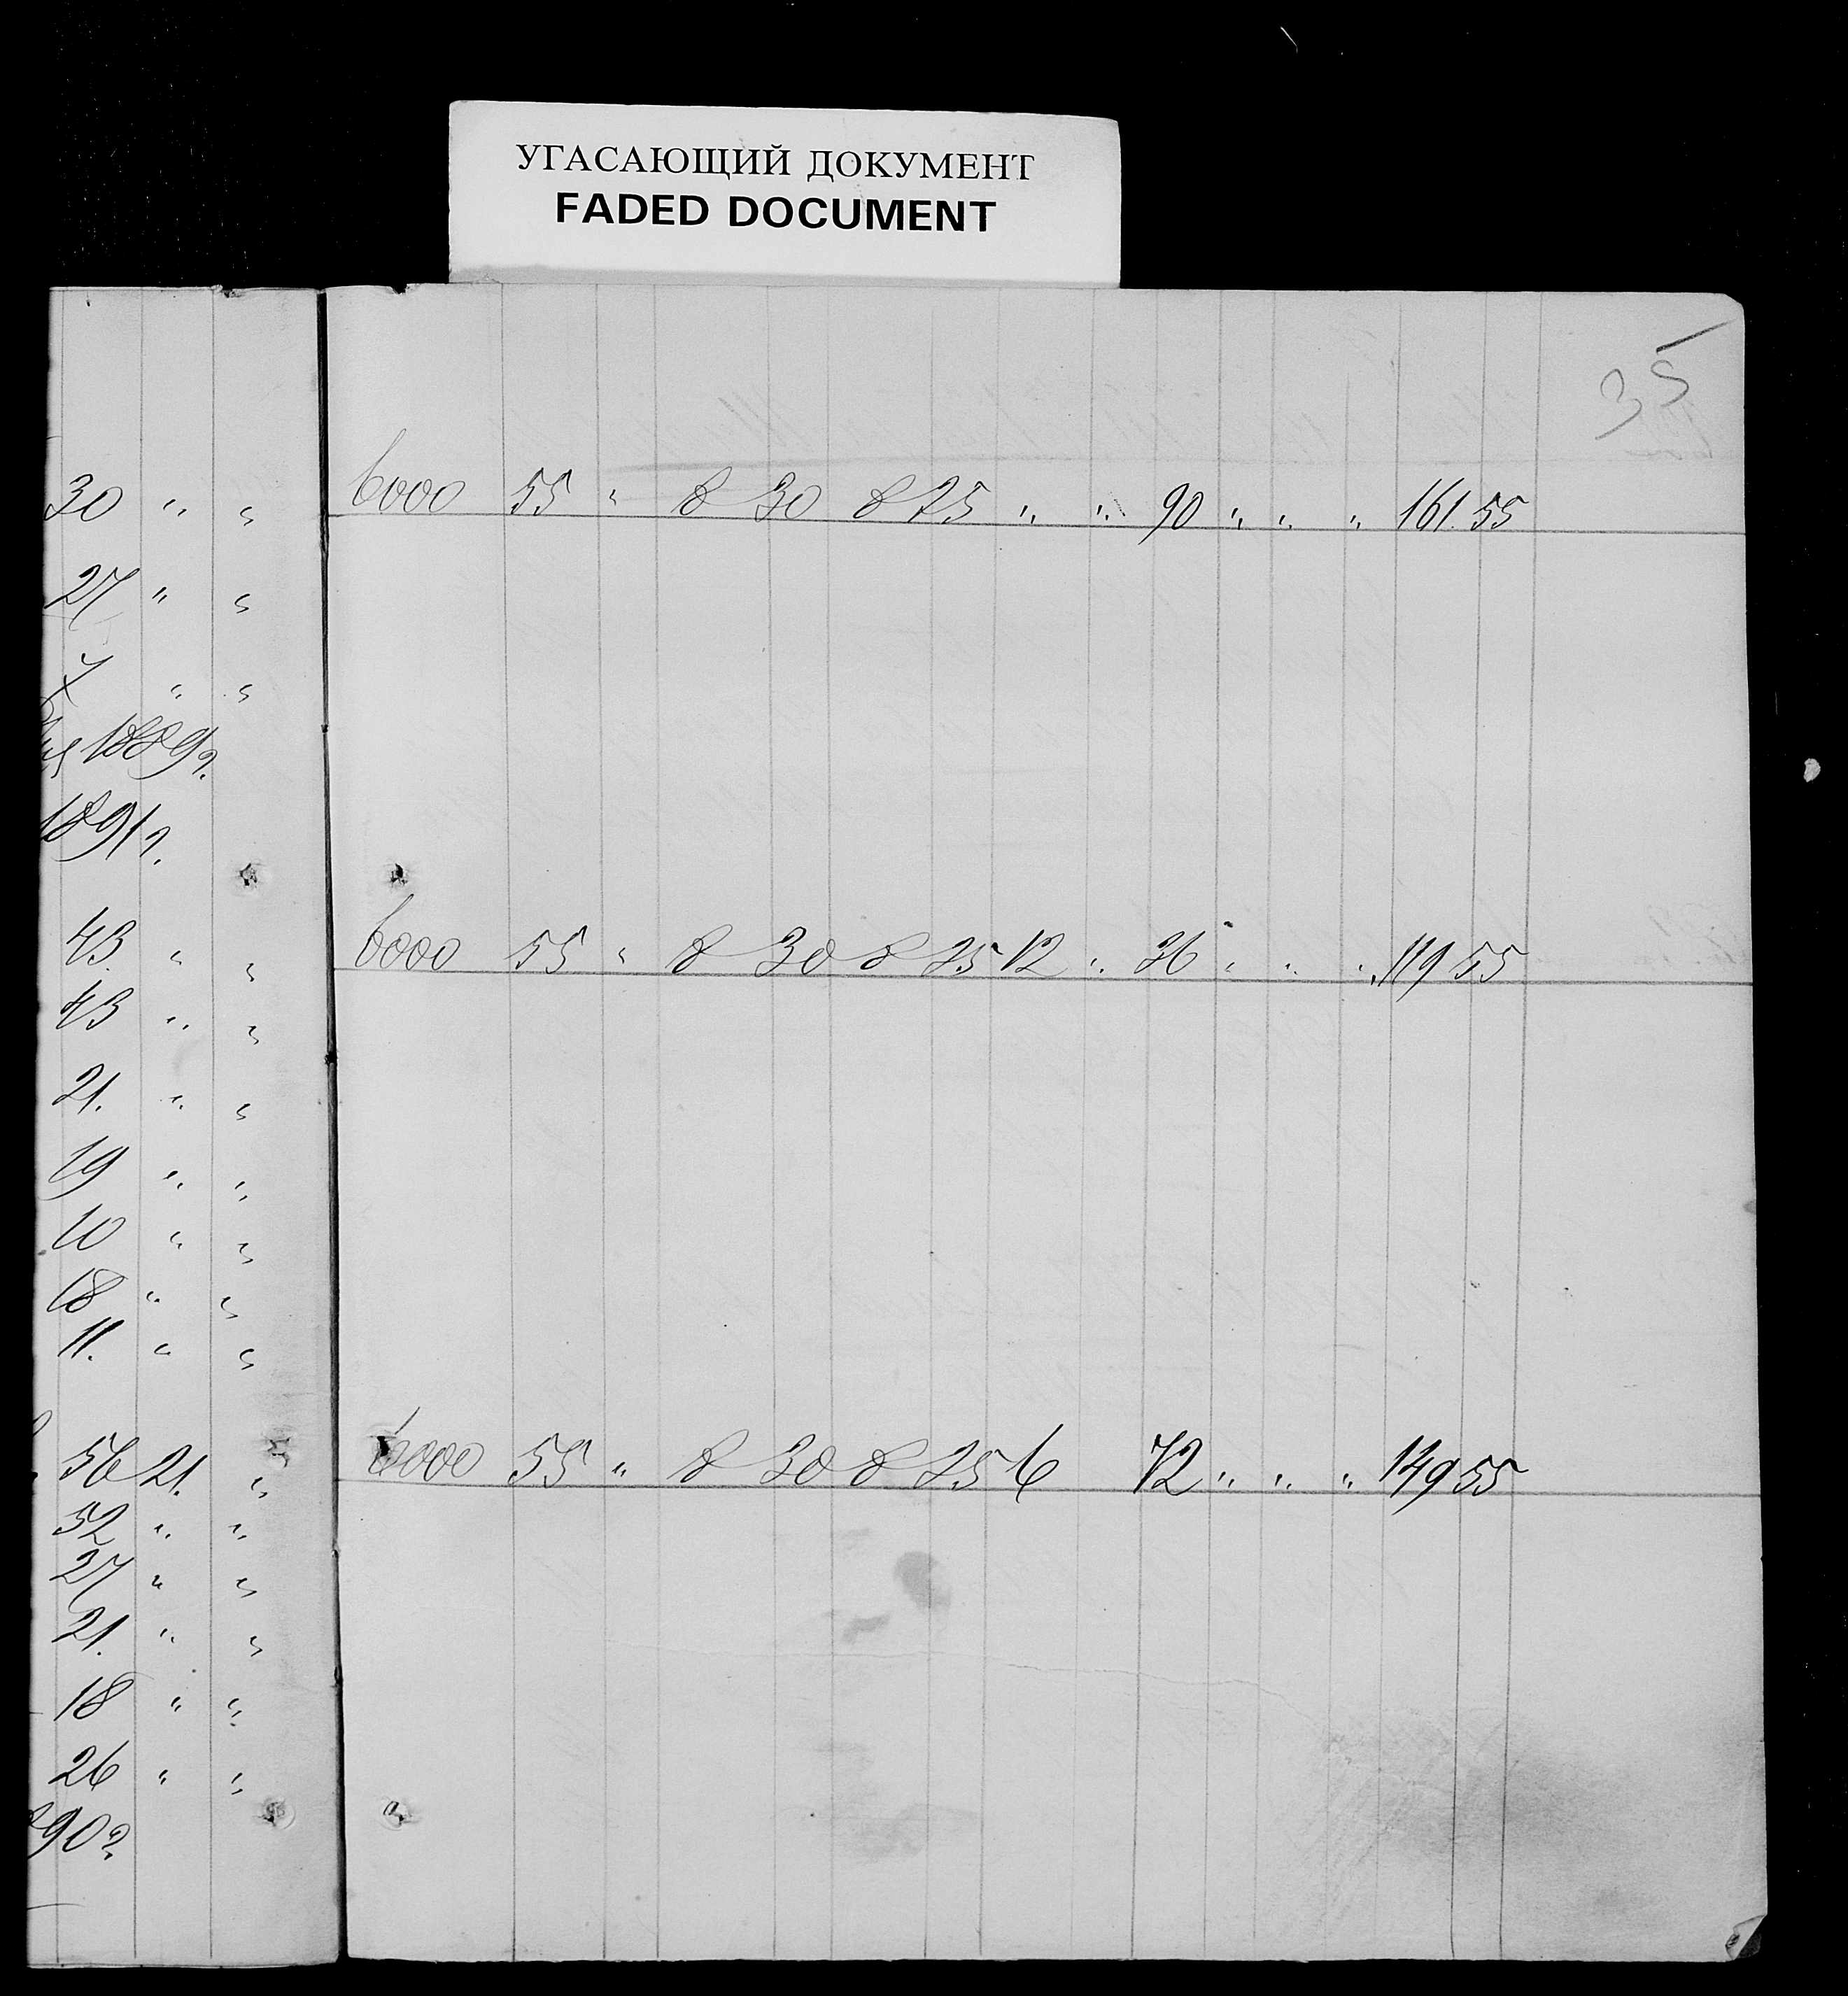 УГАСАЮЩИЙ ДОКУМЕНТ
FADED DOCUMENT
35
30 " "
27 " "
7 " "
1889 г.
1891 г.
43 " "
43 " "
21. " "
19 " "
10 " "
18 " "
11. " "
56 21. "
52 " "
27 " "
21. " "
18 " "
26 " "
90 г.
6000 55 " 8 30 8 25 " " 90 " " " 161 55
6000 55 " 8 30 8 25 12 " 36 " " " 119 55
6000 55 " 8 30 8 25 6 72 " " " 149 55